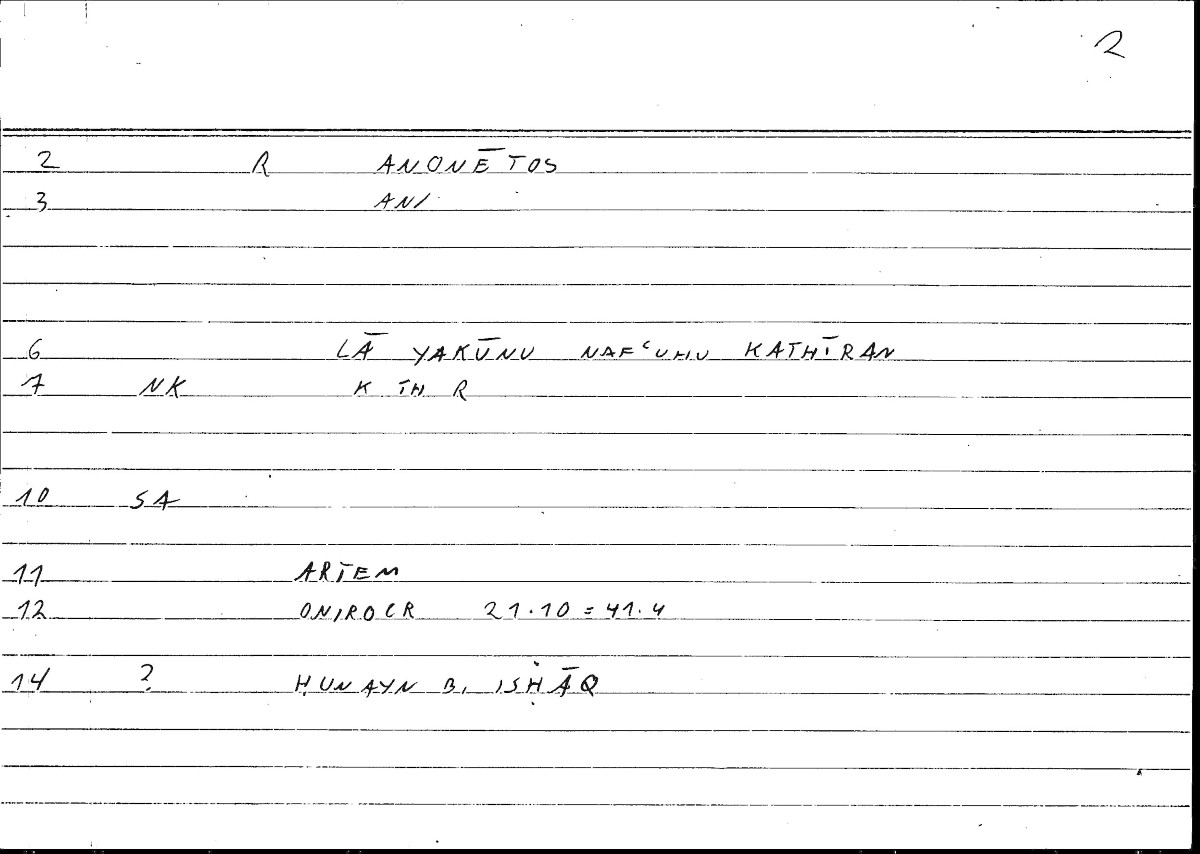 2
2 R ANONĒTOS
3 ANI
6 LĀ YAKŪNU NAFʿUHU KATHĪRAN
7 NK K TH R
10 SA
11 ARTEM
12 ONIROCR 21.10 = 41.4
14 ? ḤUNAYN B. ISḤĀQ